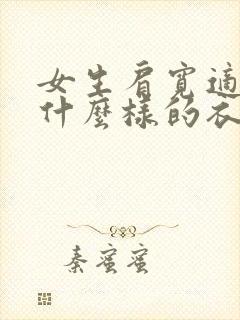 女生肩寬適
什麼樣的衣
秦蜜蜜